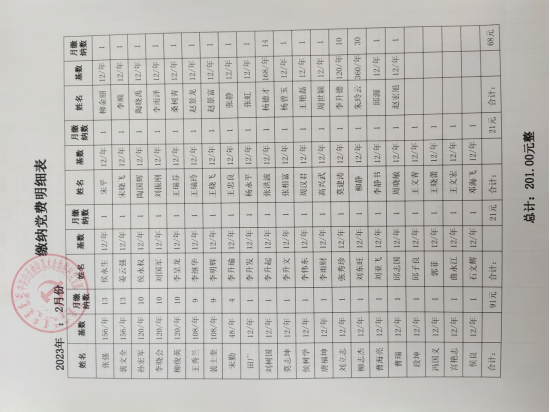 缴纳党费明细表
2023年 : 2月份
姓名 基数 月缴纳数 姓名 基数 月缴纳数 姓名 基数 月缴纳数 姓名 基数 月缴纳数
张强 156/年 13 侯永生 12/年 1 宋平 12/年 1 柳金丽 12/年 1
裴文全 156/年 13 姜云强 12/年 1 宋晓飞 12/年 1 李顺 12/年 1
孙宏军 120/年 10 侯永权 12/年 1 陶国辉 12/年 1 陶晓禹 12/年 1
李晓会 120/年 10 刘国军 12/年 1 刘振刚 12/年 1 李雨泽 12/年 1
柳俊英 120/年 10 李呈龙 12/年 1 王瑞芬 12/年 1 桑树青 12/年 1
王秀兰 108/年 9 李继华 12/年 1 王瑞玲 12/年 1 赵景龙 12/年 1
裴士奎 108/年 9 李明辉 12/年 1 王晓飞 12/年 1 赵景富 12/年 1
宋勤 48/年 4 李升瑜 12/年 1 王忠良 12/年 1 张静 12/年 1
田广 12/年 1 李升发 12/年 1 杨永平 12/年 1 张虹 12/年 1
刘树国 12/年 1 李升起 12/年 1 张洪波 12/年 1 杨德才 168/年 14
莫志坤 12/年 1 李升文 12/年 1 张相富 12/年 1 杨曾玉 12/年 1
侯树学 12/年 1 李伟东 12/年 1 周汉君 12/年 1 王艳磊 12/年 1
唐福坤 12/年 1 李雨财 12/年 1 高兴武 12/年 1 周世颖 12/年 1
刘立志 12/年 1 张秀珍 12/年 1 莫建涛 12/年 1 李升德 120/年 10
柳志杰 12/年 1 刘东旺 12/年 1 柳静 12/年 1 朱玲云 360/年 30
曹海亮 12/年 1 刘亚飞 12/年 1 李静书 12/年 1 邱源 12/年 1
曹瑞 12/年 1 邱志国 12/年 1 周晓敏 12/年 1 赵宏旭 12/年 1
段坤 12/年 1 邱子良 12/年 1 王文青 12/年 1
冯国义 12/年 1 郭菲 12/年 1 王晓蕾 12/年 1
宫艳志 12/年 1 曲永江 12/年 1 王文宏 12/年 1
侯良 12/年 1 石文辉 12/年 1 邓海飞 12/年 1
合计: 91元 合计: 21元 合计: 21元 合计: 68元
总计: 201.00元整